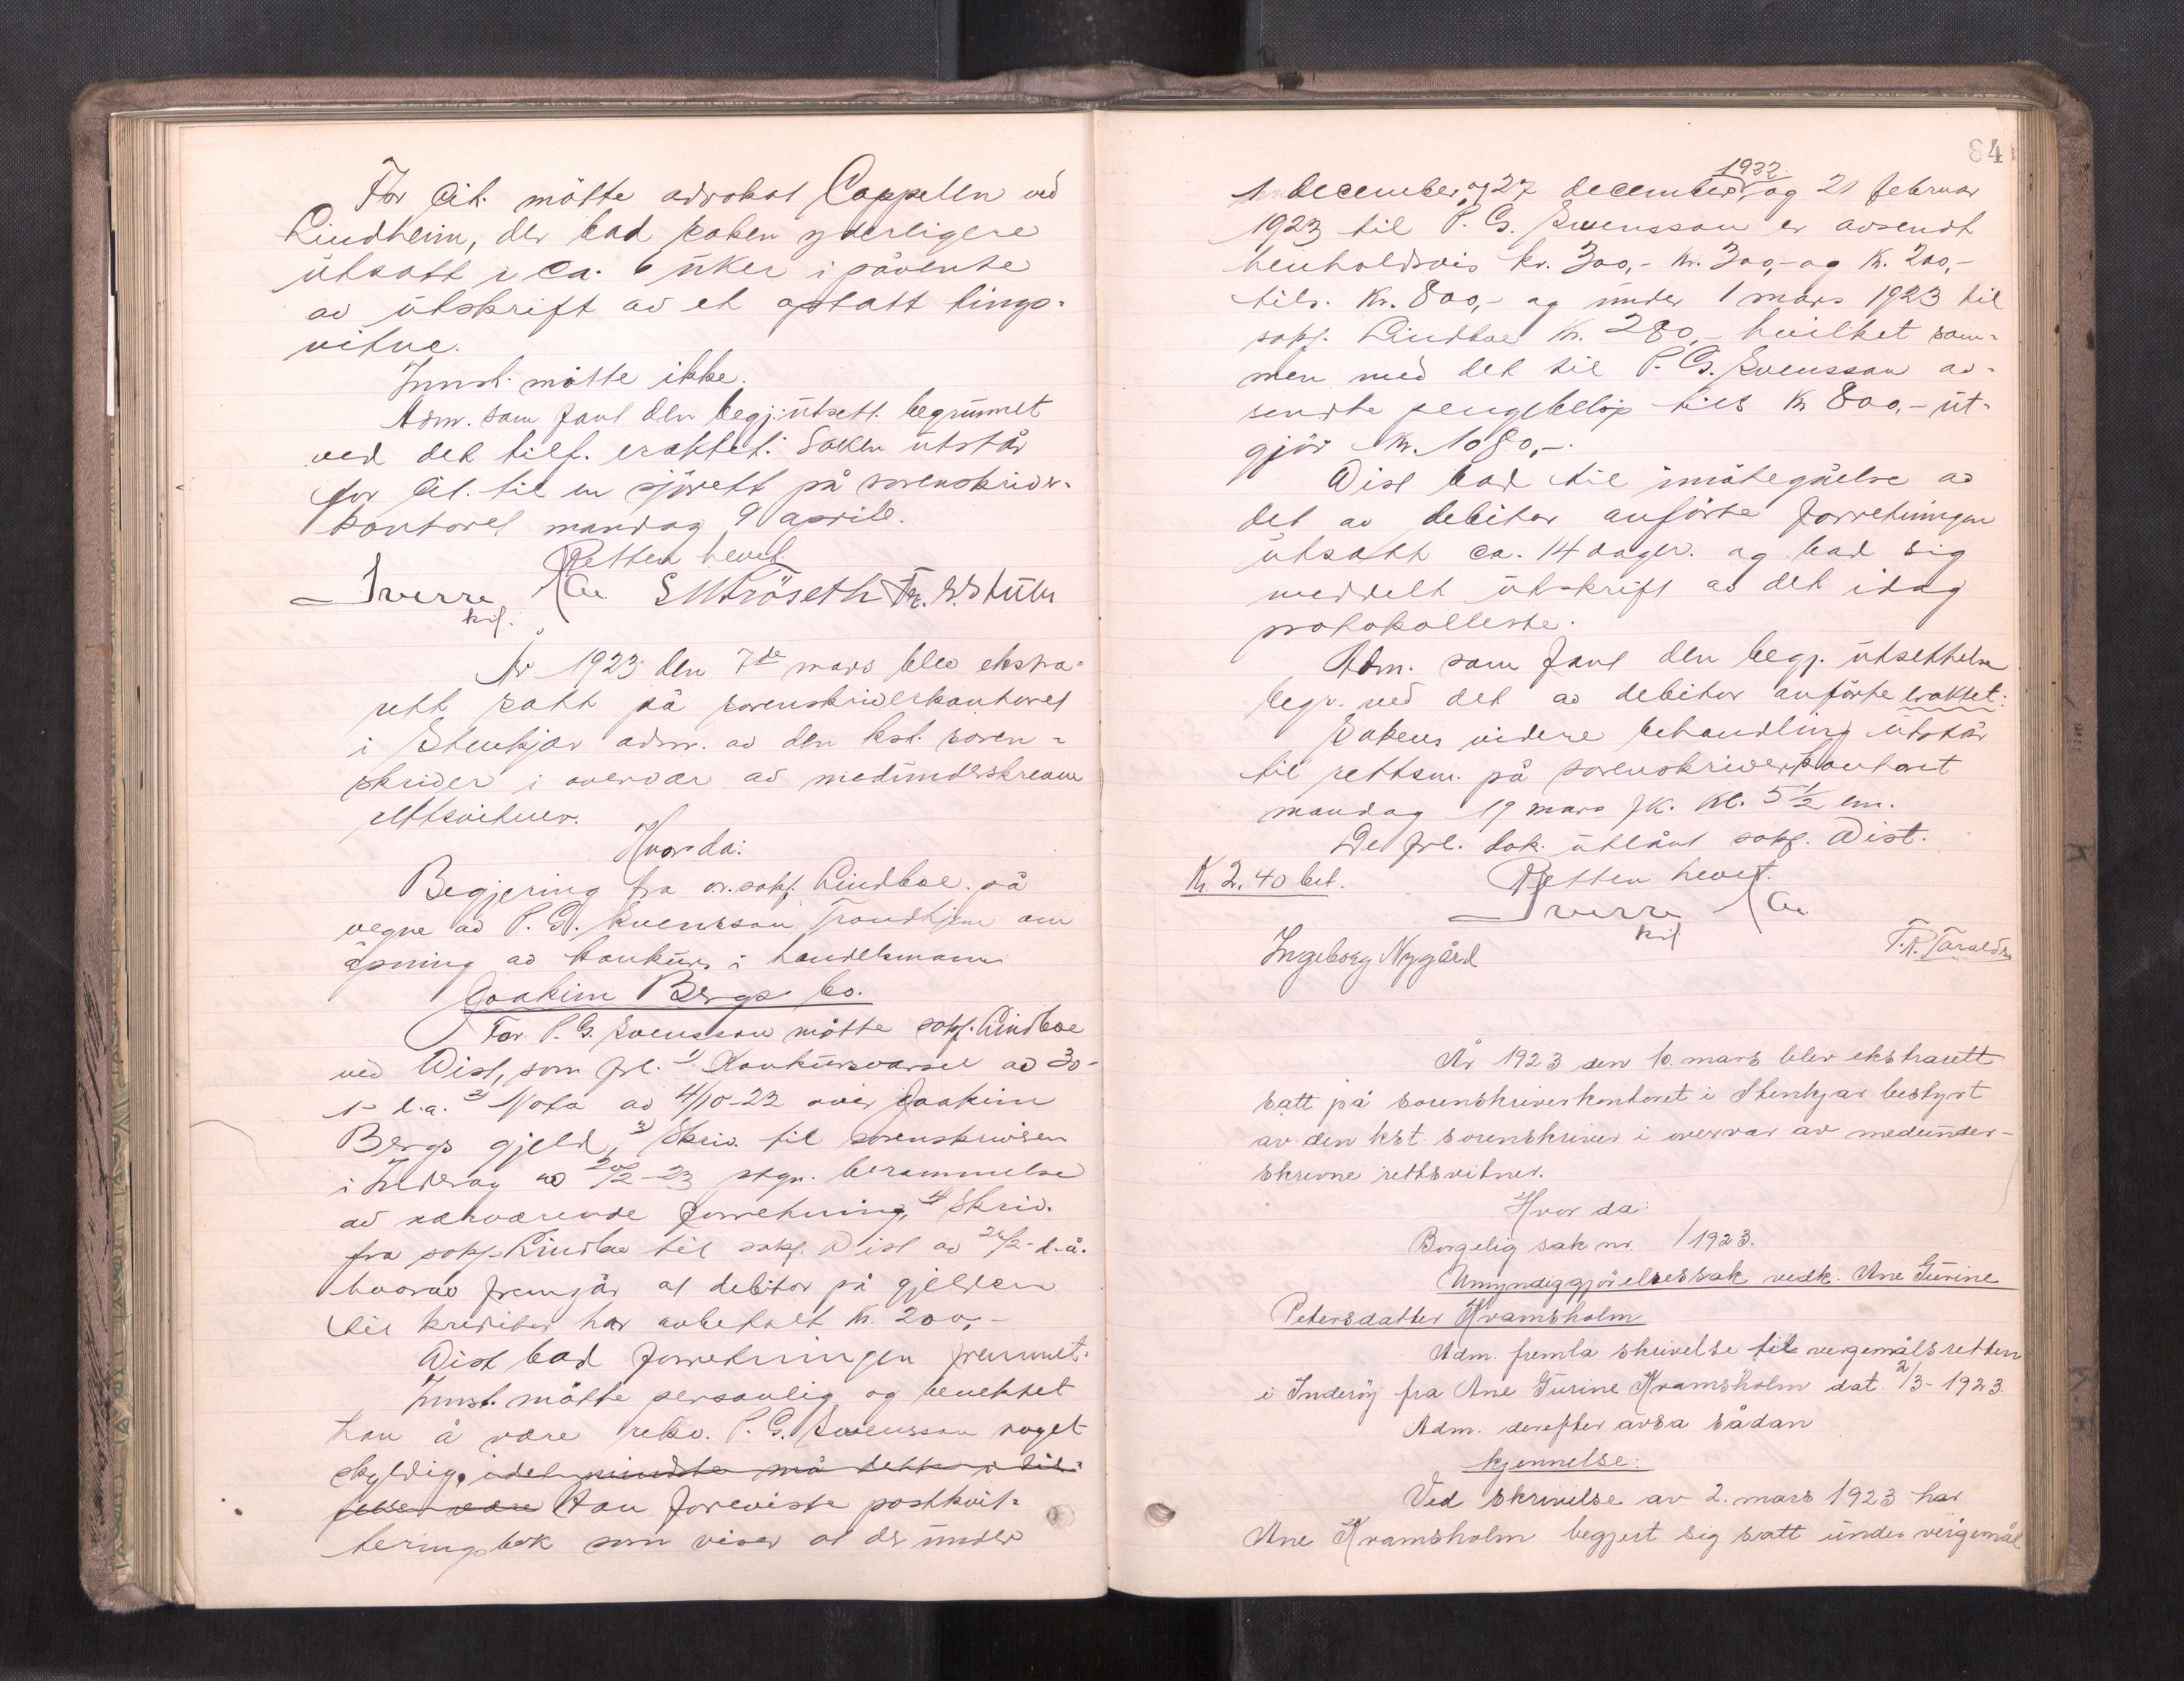 For Cit. mötte advokat Cappelen ved
Lindheim, der bad saken yderligere
utsatt i ca. 6 uker i påvente
av utskrift av et optatt tings-
vitne.
Innst. mötte ikke.
Adm. som fant den begj. utsett. begrunnet
ved det tilf. eraktet: Saken utstår
for Cit. til en sjörett på sorenskriver-
kontoret mandag 9 april.
Retten hevet.
Sverre
kst.
År 1923 den 7de mars blev ekstra-
rett satt på sorenskriverkontoret
i Stenkjær adm. av den kst. soren-
skriver i overvær av medunderskrevne
rettsvitner.
Hvor da:
Begjering fra or.sakf. Lindboe på
vegne av P. G. Svensson Trondhjem om
åpning av konkurs i handelsmann
Joakim Bergs bo.
For P. G. Svensson mötte sakf. Lindboe
ved Wist, som frl. 1) Konkursvarsel av 30-
1- d.a. 2) Nota av 4/10-22 over Joakim
Bergs gjeld, 3) Skriv. til sorenskriveren
i Inderøy av 20/2-23 ang. berammelse
av nærværende forretning, 4) Skriv.
fra sakf. Lindboe til sakf. Wist av 26/2- d.å.
hvorav fremgår at debitor på gjelden
til kreditor har avbetalt kr. 200,-
Wist bad forretningen fremmet.
Innst. mötte personlig og benektet
han å være rekv. P. G. Svensson noget
skyldig, i det mindste må dette i til-
felle være Han foreviste postkvit-
teringsbok som viser at der under
84
1 december, og 27 december 1922 og 21 februar
1923 til P. G. Svensson er avsendt
henholdsvis kr. 300,- kr. 300,- og kr. 200,-
tils. kr. 800,- og under 1 mars 1923 til
sakf. Lindboe kr. 280,- hvilket sam-
men med det til P. G. Svensson av-
sendte pengebeløp tils kr 800,- ut-
gjör kr. 1080,-.
Wist bad til imötegåelse av
det av debitor anförte forretningen
utsatt ca. 14 dager. og bad sig
meddelt utskrift av det idag
protokollerte.
Adm. som fant den begj. utsettelse
begr. ved det av debitor anförte eraktet:
Sakens videre behandling utstår
til rettsm. på sorenskriverkontoret
mandag 19 mars fk. kl. 5 1/2 em.
De frl. dok. utlånt sakf. Wist.
Kr. 2.40 bet.
Retten hevet.
Sverre
kst
Ingeborg Nygård
År 1923 den 10. mars blev ekstrarett
satt på sorenskriverkontoret i Stenkjær bestyrt
av den kst. sorenskriver i overvær av medunder-
skrevne rettsvitner.
Hvor da:
Borgelig sak nr. /1923.
Umyndiggjörelsessak vedk. Ane Turine
Petersdatter Kvamsholm
Adm. fremla skrivelse til vergemålsretten
i Inderöy fra Ane Turine Kvamsholm dat. 2/3-1923.
Adm. derefter avsa sådan
kjennelse:
Ved skrivelse av 2. mars 1923 har
Ane Kvamsholm begjert sig satt under vergemål